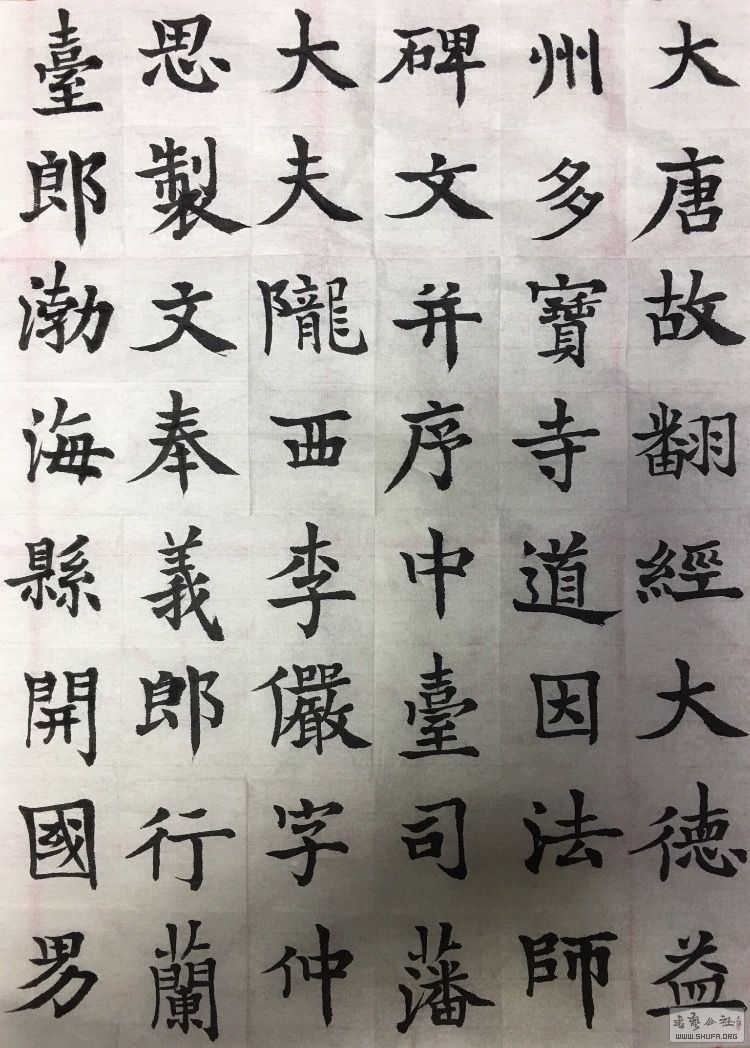 大唐故翻經大德益
州多寶寺道因法師
碑文并序中臺司藩
大夫隴西李儼字仲
思製文奉義郎行蘭
臺郎渤海縣開國男
書藝公社
WWW.SHUFA.ORG